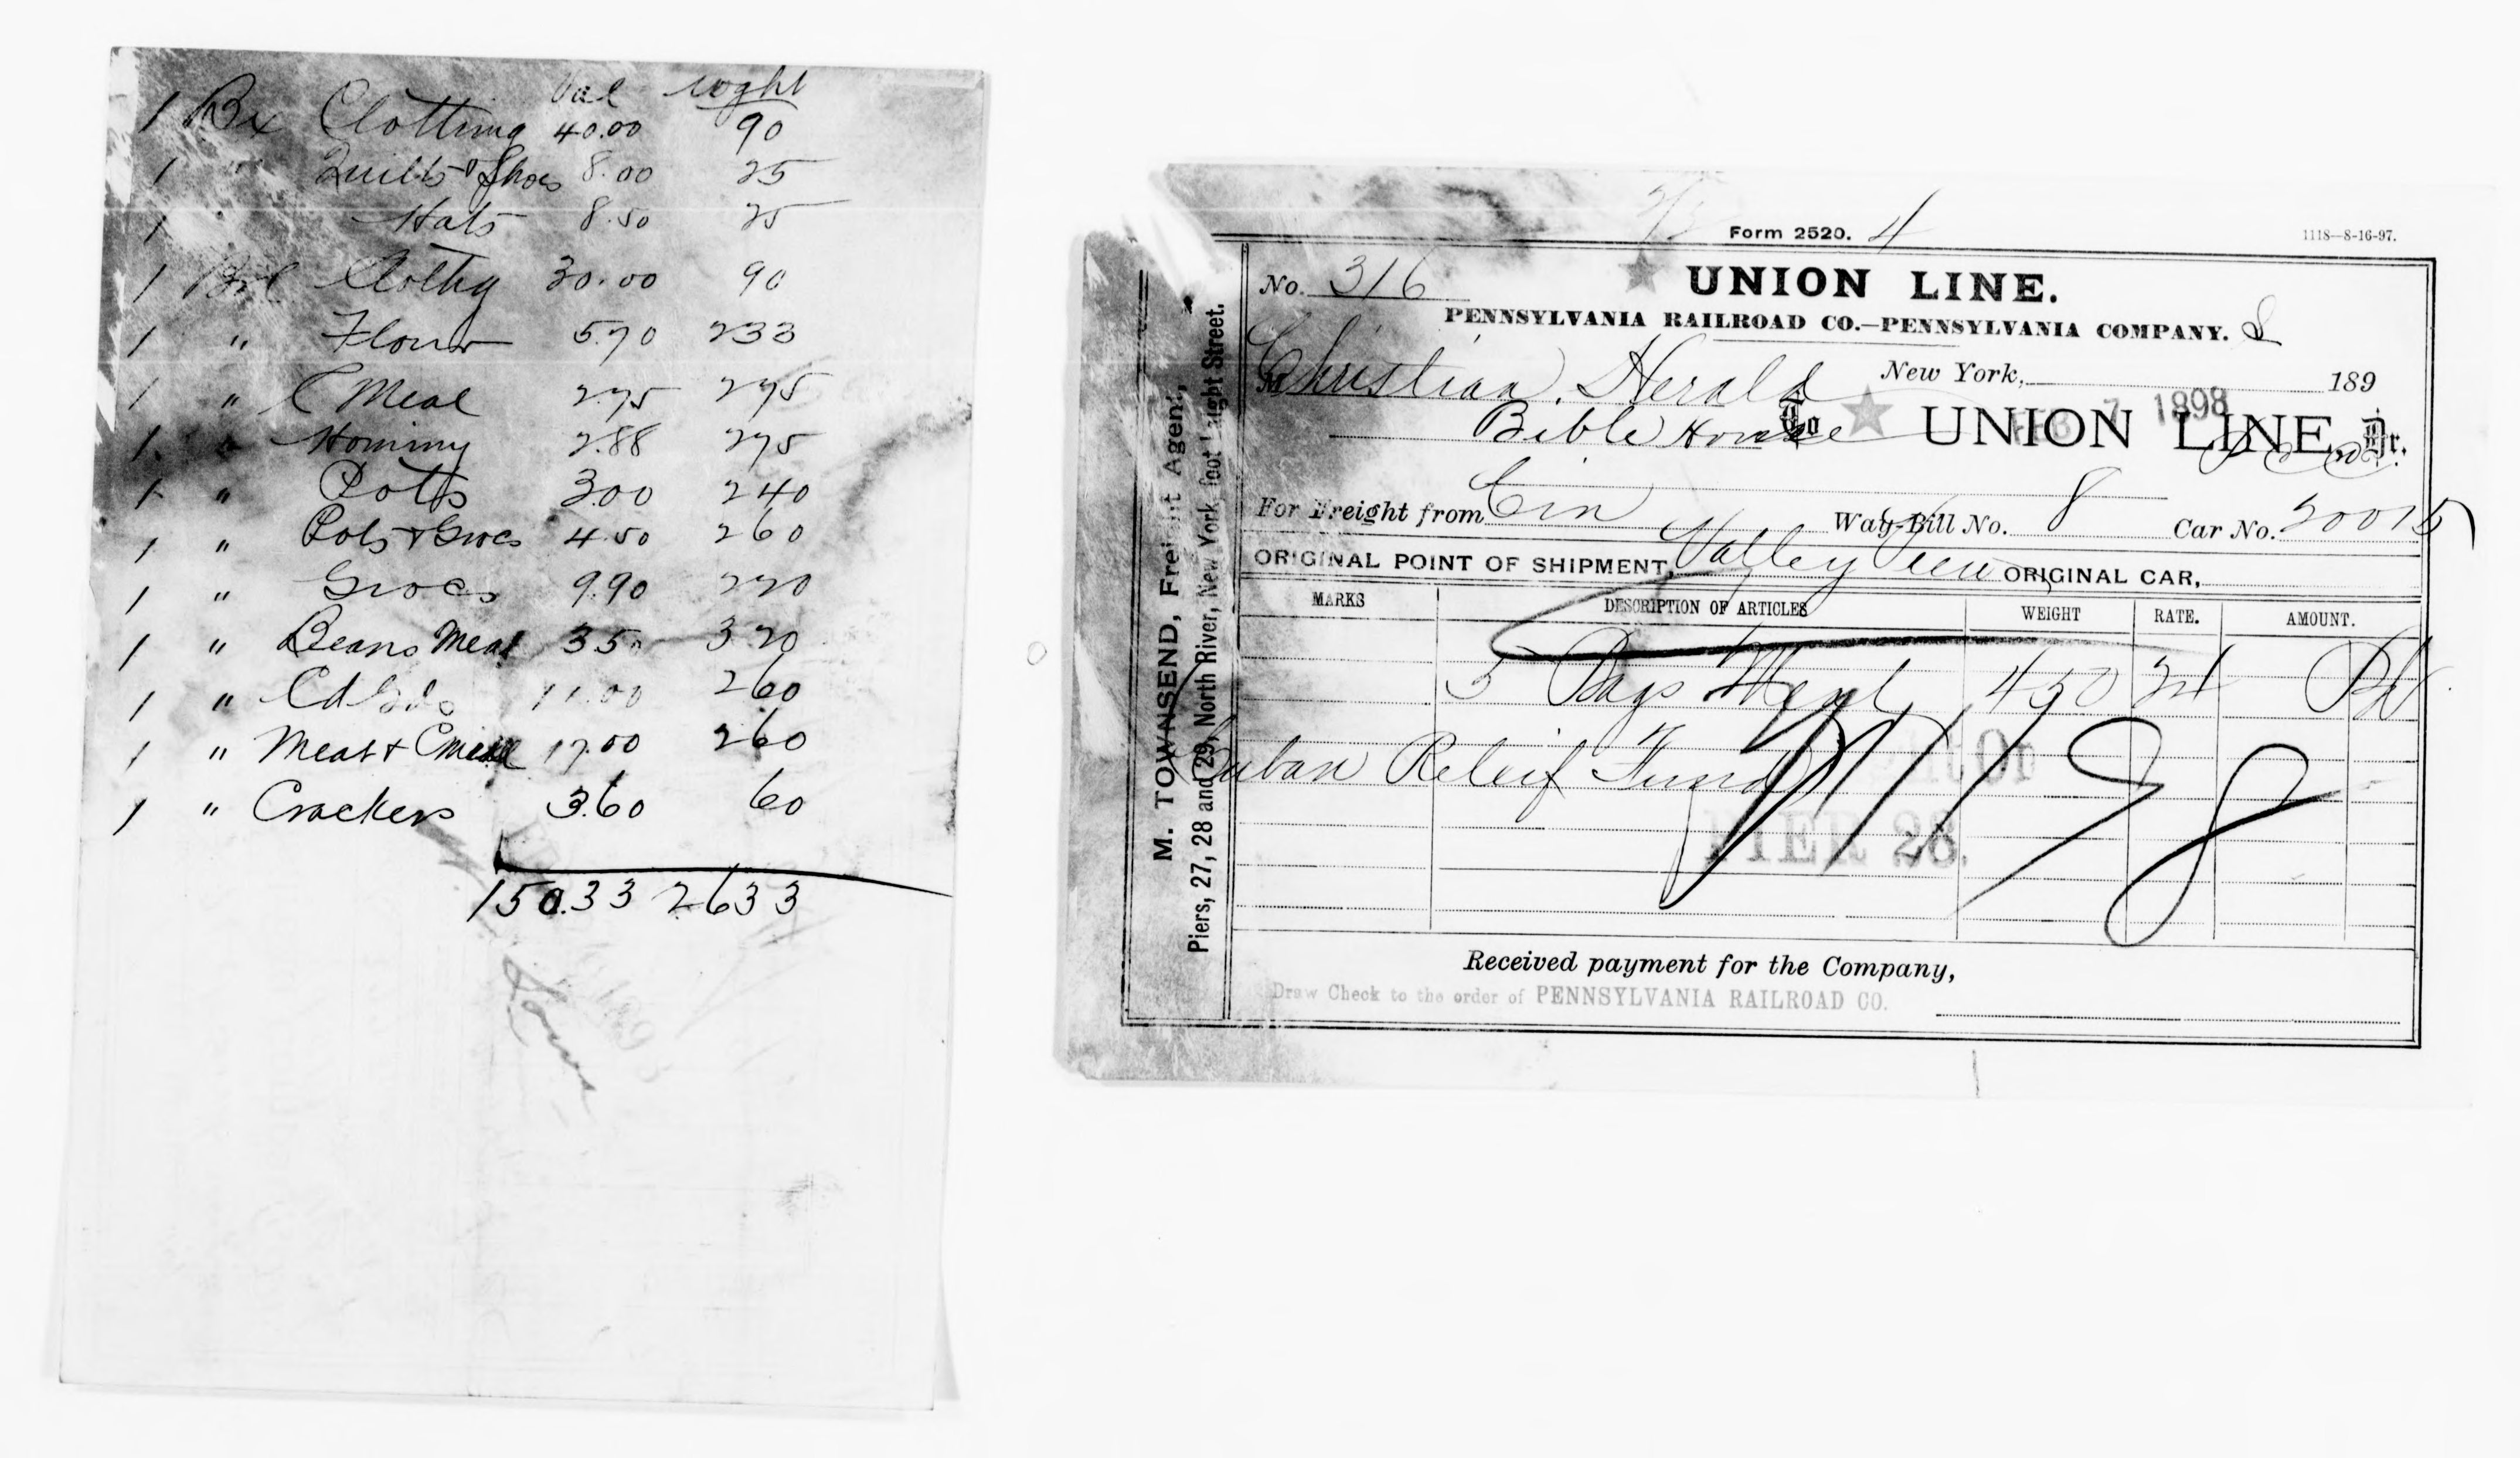 Val wght
1 Bx Clothing 40.00 90
1 " Quilts & Shoes 8.00 25
1 Hats 8.50 25
1 Brl Clothg 30.00 90
1 " Flour 5.70 233
1 " C Meal 2.75 275
1 " Hominy 2.88 275
1 " Pots 3.00 240
1 " Pots & Grocs 4.50 260
1 " Grocs 9.90 220
1 " Beans Meal 3.50 320
1 " Cd Gds 11.00 260
1 " Meat & C Meal 17.00 260
1 " Crackers 3.60 60
150.33 2633
Form 2520. 4
1118—8-16-97.
No. 316
UNION LINE.
PENNSYLVANIA RAILROAD CO.—PENNSYLVANIA COMPANY.
Christian Herald New York, 189
FEB 7 1898
Bible House To UNION LINE, Dr.
For Freight from Cin Way-Bill No. 8 Car No. 20015
ORIGINAL POINT OF SHIPMENT, Valley View ORIGINAL CAR,
MARKS DESCRIPTION OF ARTICLES WEIGHT RATE. AMOUNT.
5 Bags Meal 450
Cuban Releif Fund
PIER 28.
Received payment for the Company,
Draw Check to the order of PENNSYLVANIA RAILROAD CO.
M. TOWNSEND, Freight Agent,
Piers, 27, 28 and 29, North River, New York, foot Laight Street.